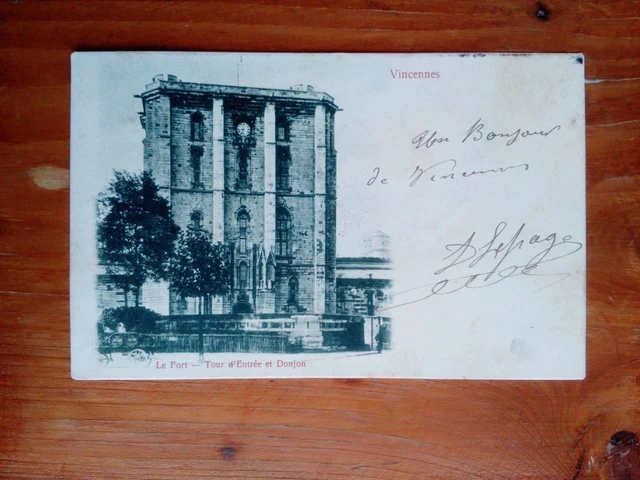 Vincennes
Un Bonjour
de Vincennes
A Lepage
Le Fort — Tour d'Entrée et Donjon